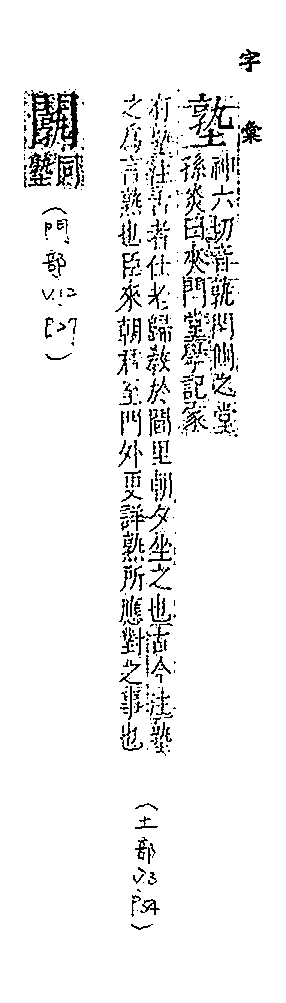 字彙
塾
神六切音孰門側之堂
孫炎曰夾門堂學記家
有塾註古者仕老歸教於閭里朝夕坐之也古今注塾
之為言熟也臣來朝君至門外更詳熟所應對之事也
(土部 V.3 P.54)
闍
同塾
(門部 V.12 P.27)